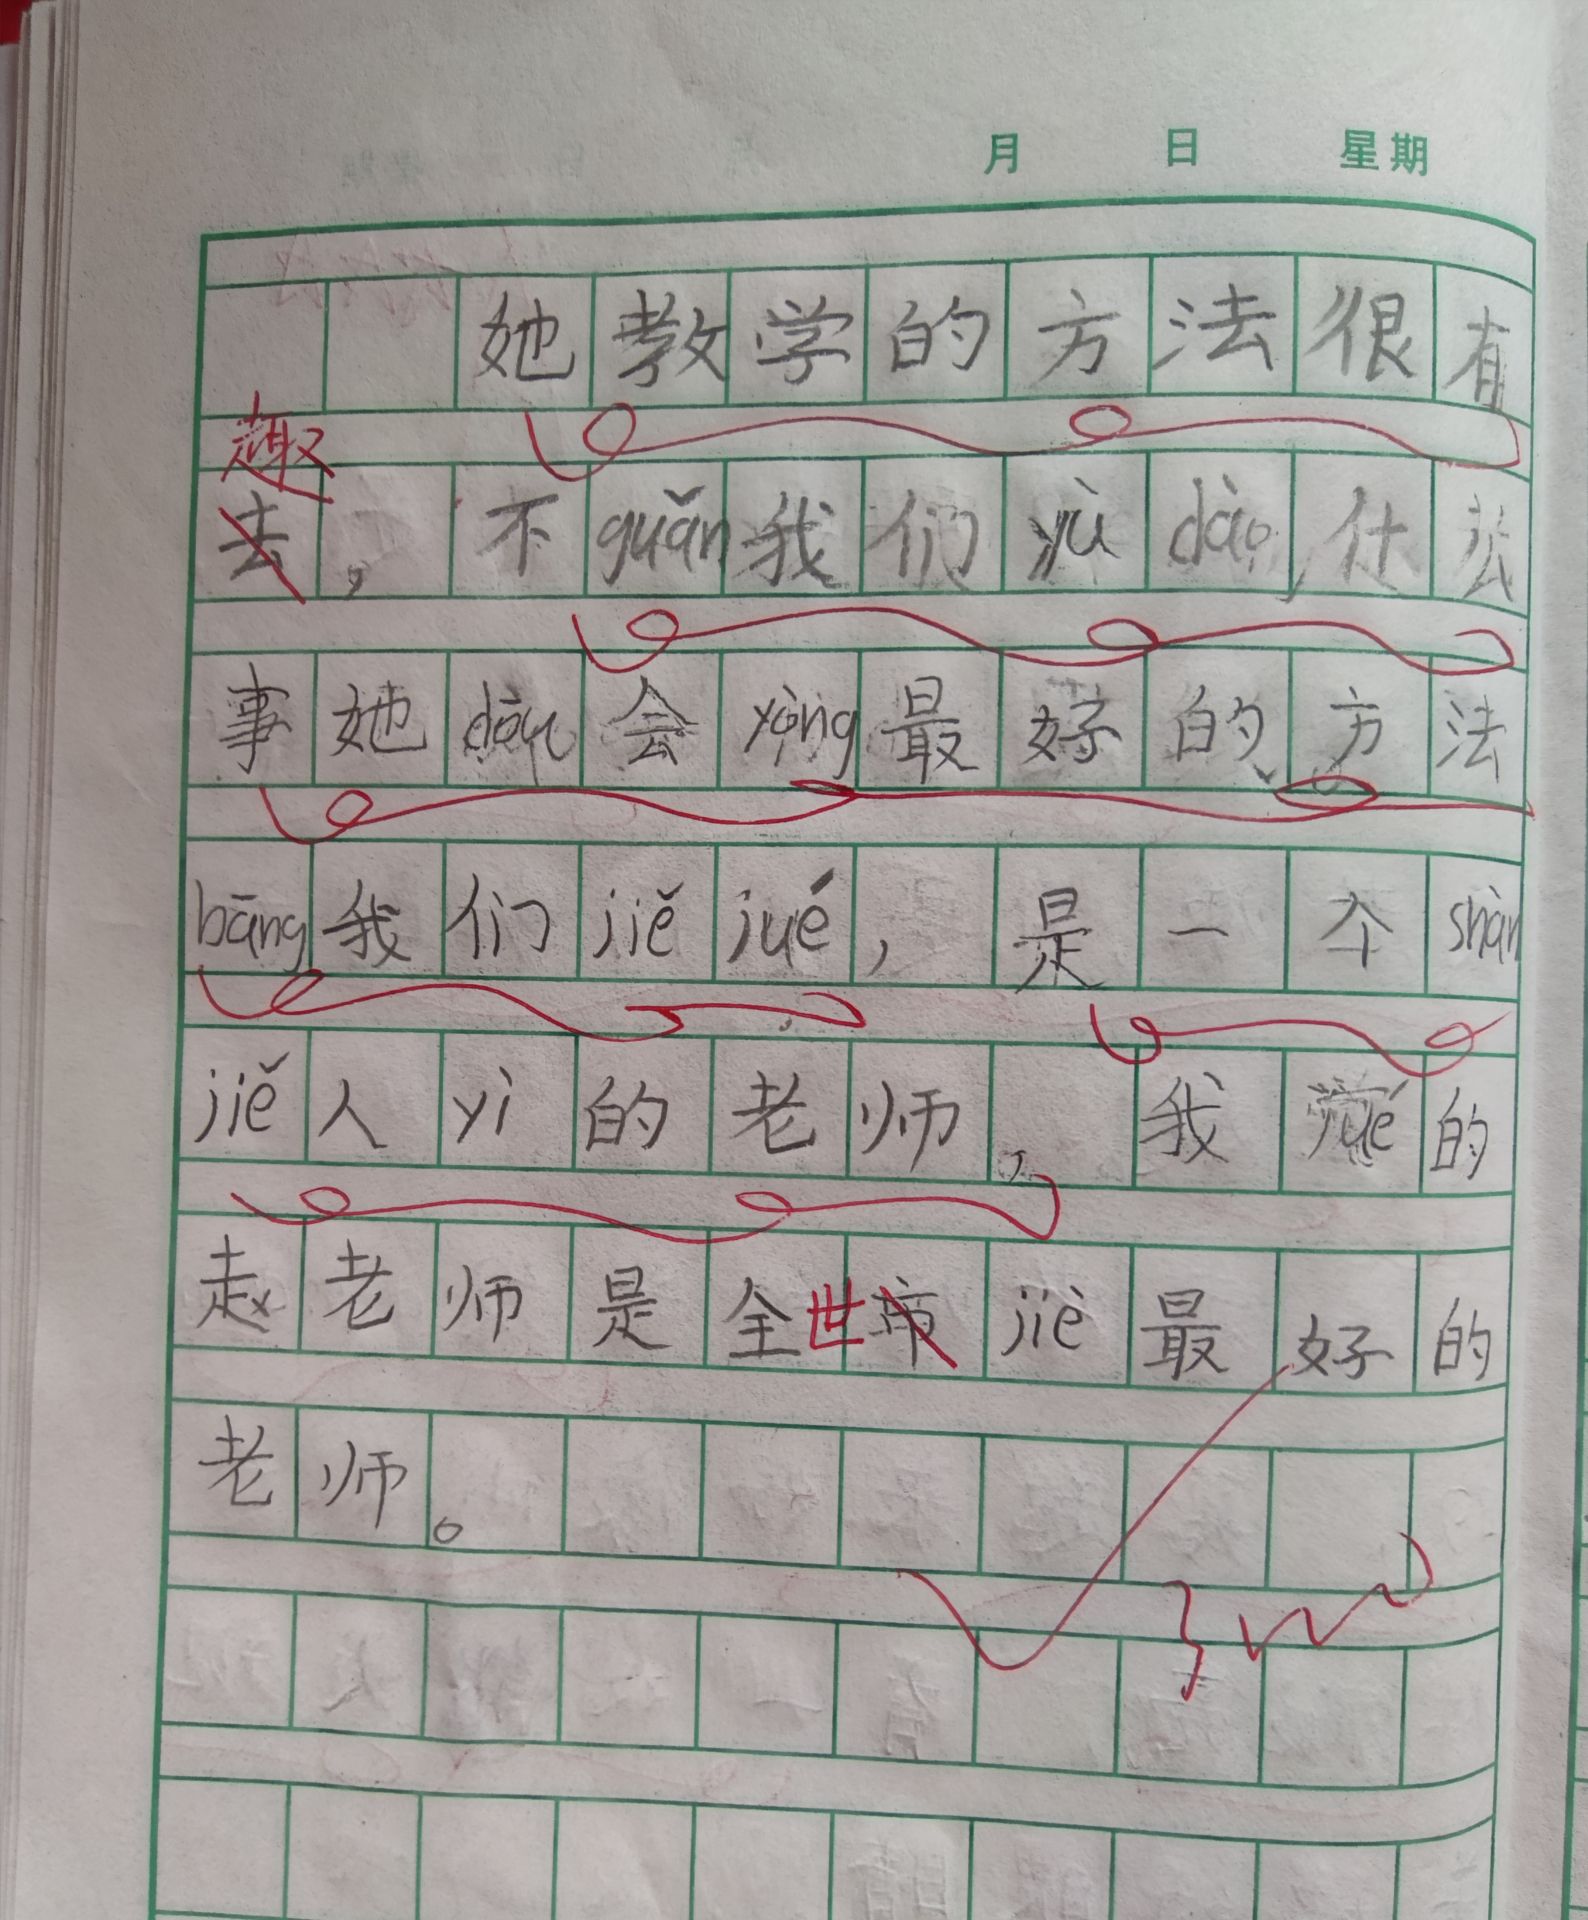 月 日 星期
她教学的方法很有
趣
去，不guǎn我们yù dào什么
事她dōu会yòng最好的方法
bāng我们jiě jué，是一个shàn
jiě人yì的老师，我jué的
赵老师是全世市jiè最好的
老师。